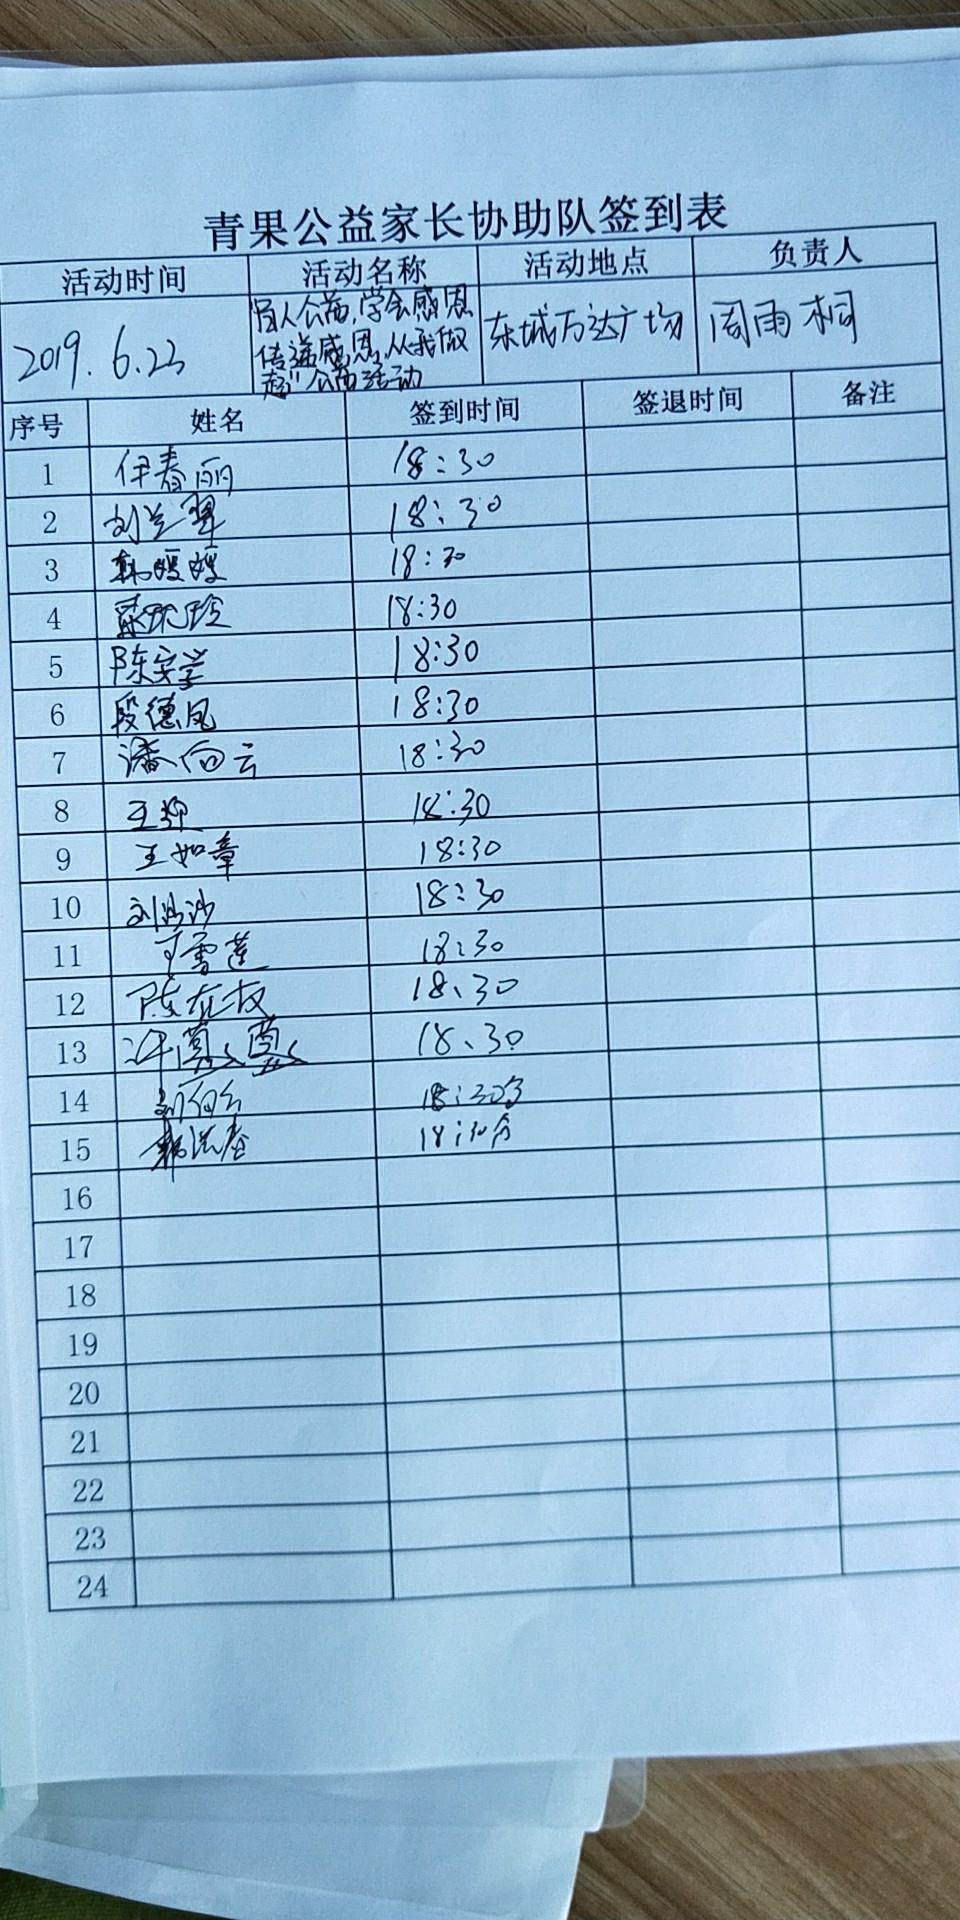 青果公益家长协助队签到表
活动时间 活动名称 活动地点 负责人
2019.6.23 公益,学会感恩 东城万达广场 周雨桐
传递感恩,从我做
起"公益活动
序号 姓名 签到时间 签退时间 备注
1 伊春丽 18:30
2 刘兰翠 18:30
3 韩媛媛 18:30
4 18:30
5 陈安学 18:30
6 段德凤 18:30
7 潘向云 18:30
8 王 18:30
9 王如章 18:30
10 刘沙沙 18:30
11 于雪莲 18:30
12 陈 18、30
13 许 18、30
14 18:30分
15 韩洪春 18:30分
16
17
18
19
20
21
22
23
24